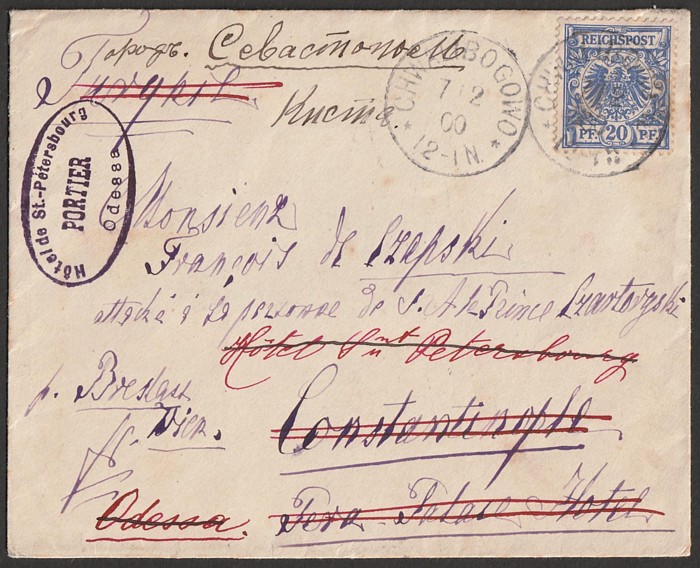 Городъ. Севастополь
Turquie
Кистъ.
REICHSPOST
PF. 20 PF.
CHWALIBOGOWO
7 12
00
12-1N.
Hôtel de St.-Pétersbourg
PORTIER
Odessa
Monsieur
François de Czepski
attaché à la personne de S. A. le Prince Czartoryski
Hôtel St Petersbourg
p. Breslau
Wien.
Constantinople
Odessa.
Pera Palace Hotel